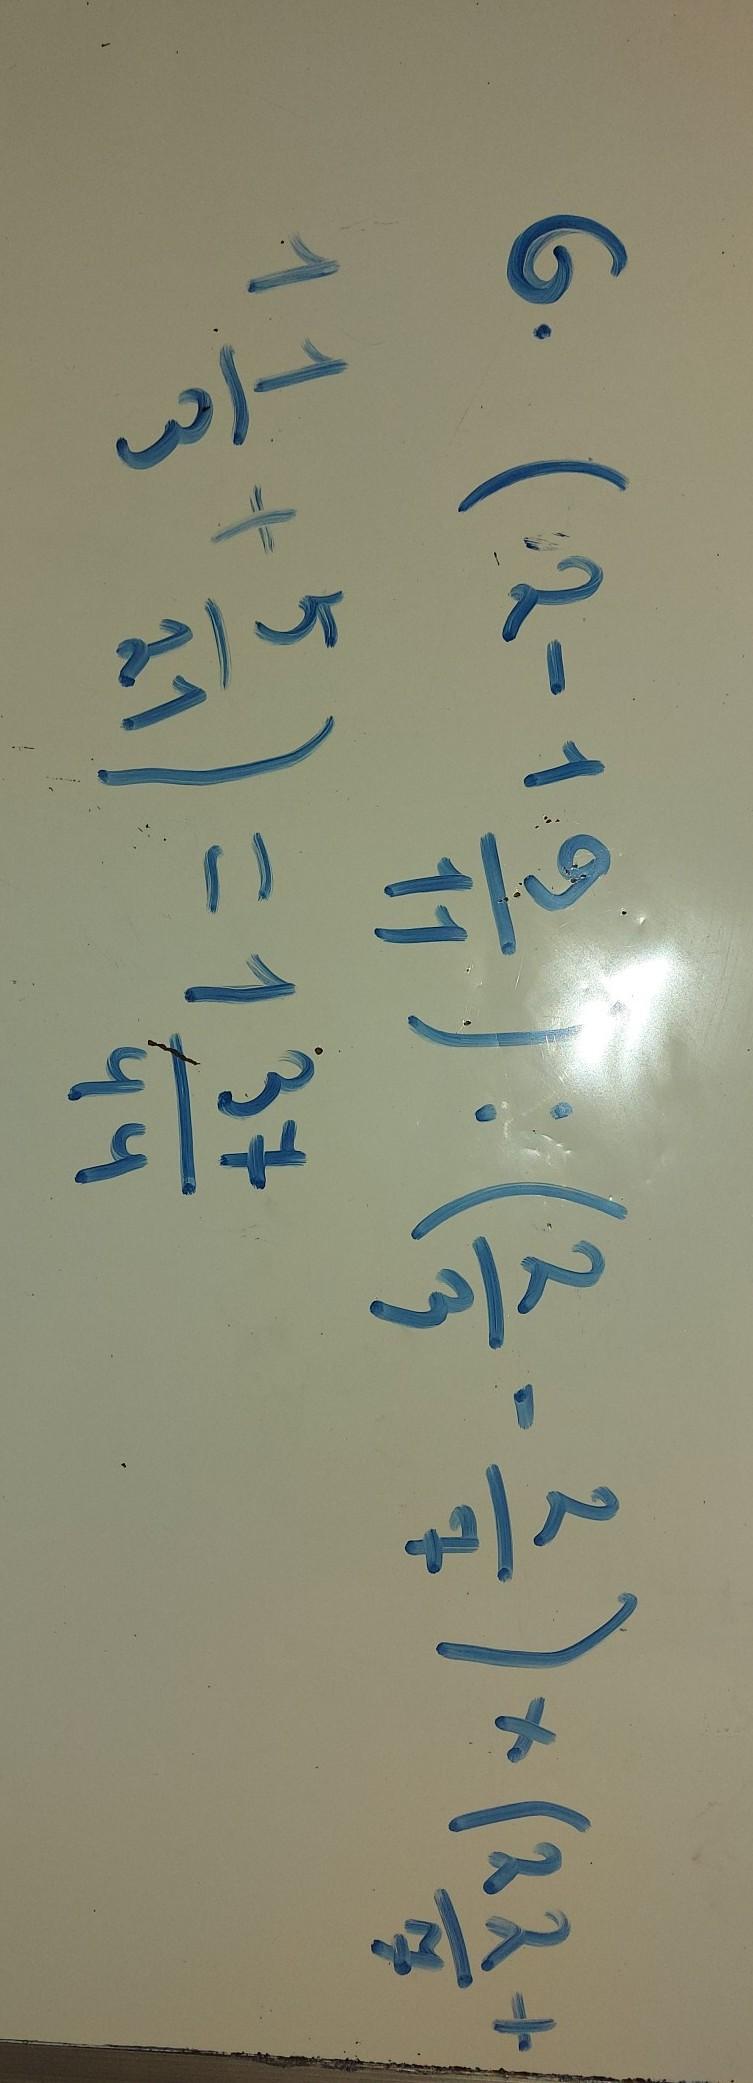 6. (2 - 1 9/11) : (2/3 - 2/7) × (2 2/7 +
1 1/3 + 5/21) = 1 37/44